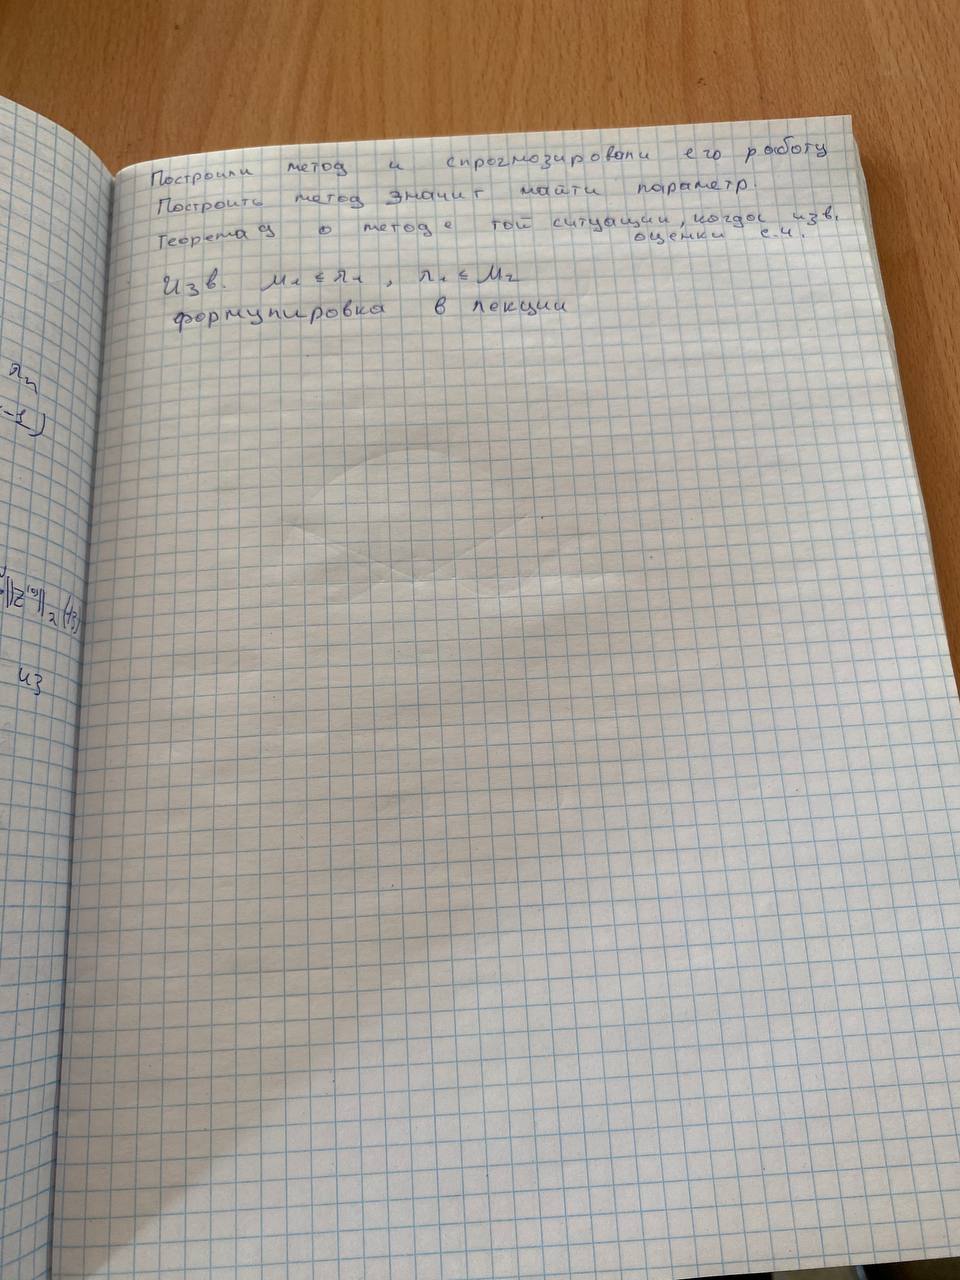 Построили метод и спрогнозировали его работу
Построить метод значит найти параметр.
Теорема о методе той ситуации, когда изв.
оценки с.ч.
Изв. M₁ ≤ λ₁, λₙ ≤ M₂
формулировка в лекции
λₙ
из